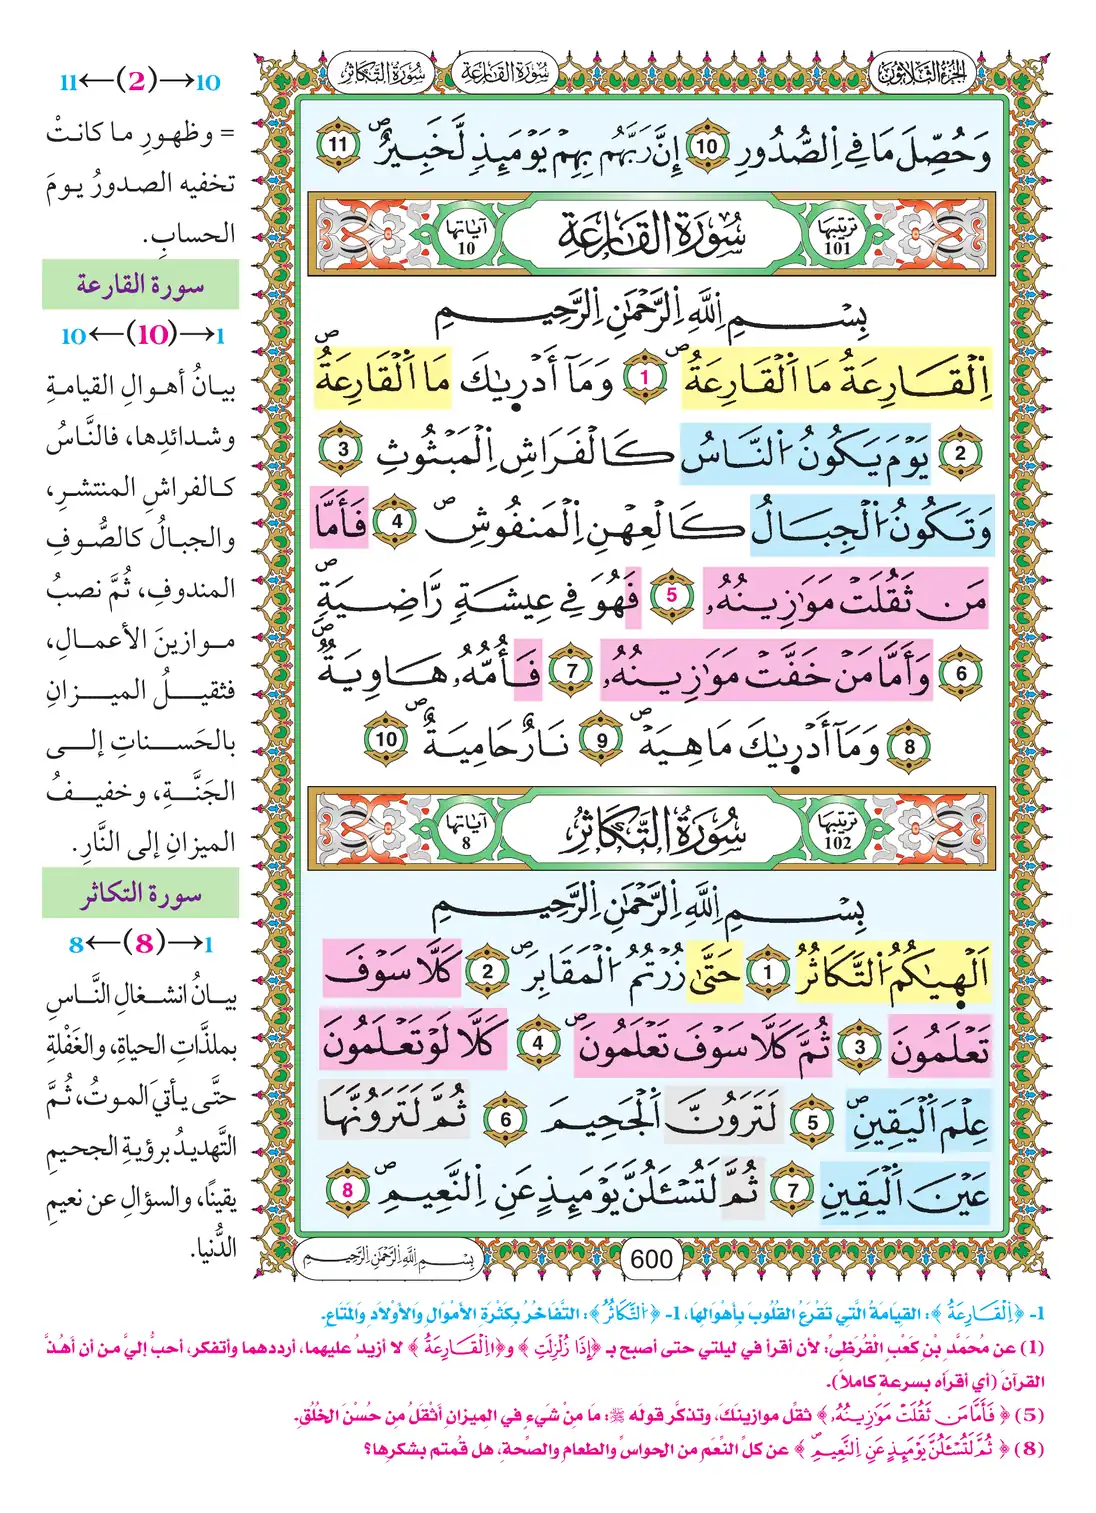 الجزء الثلاثون
سورة القارعة
سورة التكاثر
وَحُصِّلَ مَا فِے اِ۬لصُّدُورِ 10 إِنَّ رَبَّهُم بِهِمْ يَوْمَئِذٖ لَّخَبِيرُۢ 11
ترتيبها 101
سُورَةُ القَارِعَة
آياتها 10
بِسْمِ اِ۬للَّهِ اِ۬لرَّحْمَٰنِ اِ۬لرَّحِيمِ
اِ۬لْقَارِعَةُ مَا اَ۬لْقَارِعَةُ 1 وَمَآ أَدْر۪ىٰكَ مَا اَ۬لْقَارِعَةُ
2 يَوْمَ يَكُونُ اُ۬لنَّاسُ كَالْفَرَاشِ اِ۬لْمَبْثُوثِ 3
وَتَكُونُ اُ۬لْجِبَالُ كَالْعِهْنِ اِ۬لْمَنفُوشِ 4 فَأَمَّا
مَن ثَقُلَتْ مَوَٰزِينُهُۥ 5 فَهُوَ فِے عِيشَةٖ رَّاضِيَةٖ
6 وَأَمَّا مَنْ خَفَّتْ مَوَٰزِينُهُۥ 7 فَأُمُّهُۥ هَاوِيَةٞ
8 وَمَآ أَدْر۪ىٰكَ مَا هِيَهْ 9 نَارٌ حَامِيَةُۢ 10
ترتيبها 102
سُورَةُ التَّكَاثُر
آياتها 8
بِسْمِ اِ۬للَّهِ اِ۬لرَّحْمَٰنِ اِ۬لرَّحِيمِ
اَلْه۪ىٰكُمُ اُ۬لتَّكَاثُرُ 1 حَتَّىٰ زُرْتُمُ اُ۬لْمَقَابِرَ 2 كَلَّا سَوْفَ
تَعْلَمُونَ 3 ثُمَّ كَلَّا سَوْفَ تَعْلَمُونَ 4 كَلَّا لَوْ تَعْلَمُونَ
عِلْمَ اَ۬لْيَقِينِ 5 لَتَرَوُنَّ اَ۬لْجَحِيمَ 6 ثُمَّ لَتَرَوُنَّهَا
عَيْنَ اَ۬لْيَقِينِ 7 ثُمَّ لَتُسْـَٔلُنَّ يَوْمَئِذٍ عَنِ اِ۬لنَّعِيمِ 8
600
بِسْمِ اِ۬للَّهِ اِ۬لرَّحْمَٰنِ اِ۬لرَّحِيمِ
10→(2)←11
= وظهورِ ما كانتْ
تخفيه الصدورُ يومَ
الحسابِ.
سورة القارعة
1→(10)←10
بيانُ أهوالِ القيامةِ
وشدائدِها، فالنَّاسُ
كالفراشِ المنتشرِ،
والجبالُ كالصُّوفِ
المندوفِ، ثُمَّ نصبُ
موازينَ الأعمالِ،
فثقيلُ الميزانِ
بالحَسناتِ إلى
الجَنَّةِ، وخفيفُ
الميزانِ إلى النَّارِ.
سورة التكاثر
1→(8)←8
بيانُ انشغالِ النَّاسِ
بملذَّاتِ الحياةِ، والغَفْلةِ
حتَّى يأتيَ الموتُ، ثُمَّ
التَّهديدُ برؤيةِ الجحيمِ
يقينًا، والسؤالِ عن نعيمِ
الدُّنيا.
1- ﴿اِ۬لْقَارِعَةُ﴾: القيَامَةُ الَّتي تَقْرَعُ القُلُوبَ بِأَهْوَالِهَا، 1- ﴿اُ۬لتَّكَاثُرُ﴾: التَّفاخُرُ بِكَثْرَةِ الأَمْوَالِ وَالأَوْلَادِ وَالمَتَاعِ.
(1) عن مُحَمَّدِ بْنِ كَعْبٍ القُرَظِيِّ: لأن أقرأ في ليلتي حتى أصبح بـ ﴿إِذَا زُلْزِلَتِ﴾ و﴿اِ۬لْقَارِعَةُ﴾ لا أزيدُ عليهما، أرددهما وأتفكر، أحبُّ إليَّ من أن أهذَّ
القرآنَ (أي أقرأه بسرعةٍ كاملًا).
(5) ﴿فَأَمَّا مَن ثَقُلَتْ مَوَٰزِينُهُۥ﴾ ثقِّل موازينَكَ، وتذكَّر قولَه ﷺ: مَا مِنْ شَيْءٍ في المِيزانِ أَثْقَلُ مِن حُسْنِ الخُلُقِ.
(8) ﴿ثُمَّ لَتُسْـَٔلُنَّ يَوْمَئِذٍ عَنِ اِ۬لنَّعِيمِ﴾ عن كلِّ النِّعَمِ من الحواسِّ والطعامِ والصِّحةِ، هل قُمتم بشكرِها؟